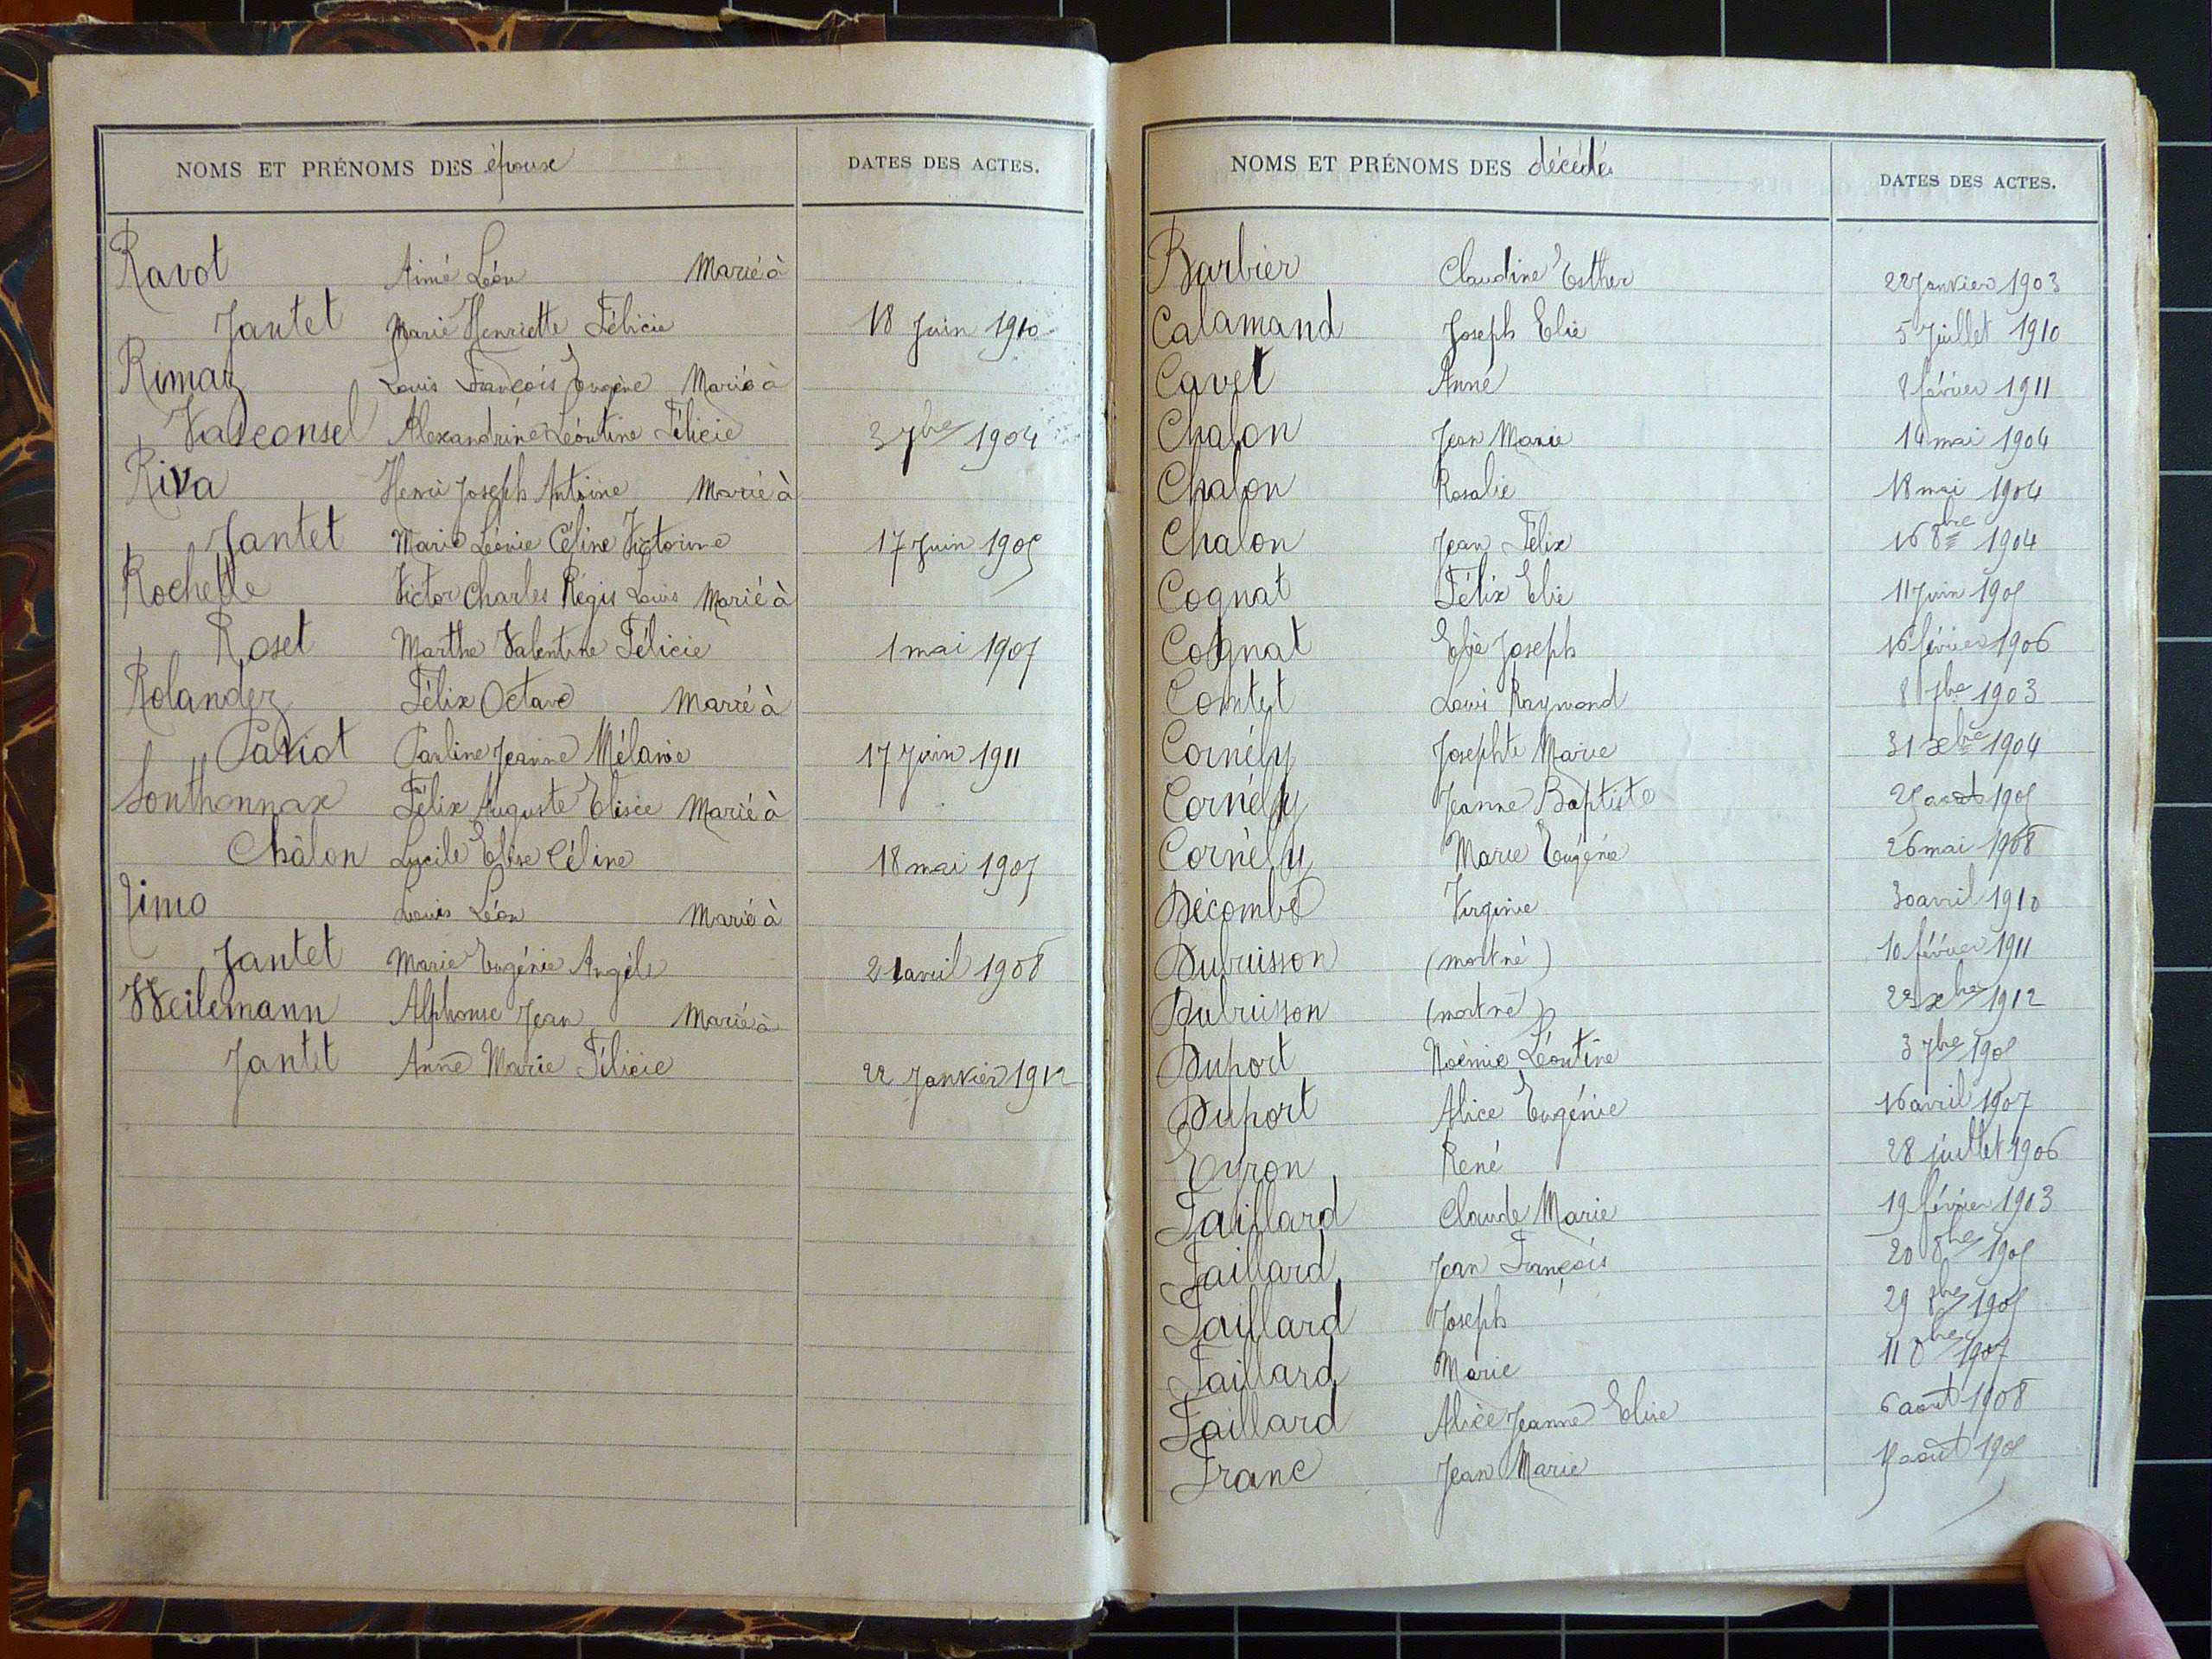 NOMS ET PRÉNOMS DES époux DATES DES ACTES.
Ravot Aimé Léon Marié à
Jantet Marie Henriette Félicie 18 Juin 1910
Rimaz Louis François Eugène Marié à
Vasconsel Alexandrine Léontine Félicie 3 7bre 1904
Riva Henri Joseph Antoine Marié à
Jantet Marie Léonie Céline Victorine 17 Juin 1905
Rochette Victor Charles Régis Louis Marié à
Roset Marthe Valentine Félicie 1 mai 1907
Rolandez Félix Octave Marié à
Paviot Pauline Jeanne Mélanie 17 Juin 1911
Sonthonnax Félix Auguste Elisée Marié à
Châlon Lucile Elise Céline 18 mai 1907
Timo Louis Léon Marié à
Jantet Marie Eugénie Angèle 21 avril 1908
Weilemann Alphonse Jean Marié à
Jantet Anne Marie Félicie 22 Janvier 1912
NOMS ET PRÉNOMS DES décédés DATES DES ACTES.
Barbier Claudine Esther 22 Janvier 1903
Calamand Joseph Elie 5 Juillet 1910
Cavet Anne 8 février 1911
Chalon Jean Marie 14 mai 1904
Chalon Rosalie 18 mai 1904
Chalon Jean Félix 16 8bre 1904
Cognat Félix Elie 11 Juin 1905
Cognat Elie Joseph 16 février 1906
Comtet Louis Raymond 8 7bre 1903
Cornély Josephte Marie 31 xbre 1904
Cornély Jeanne Baptiste 25 août 1905
Cornély Marie Eugénie 26 mai 1908
Décombe Virginie 30 avril 1910
Dubuisson (mort né) 10 février 1911
Dubuisson (mort né) 22 xbre 1912
Duport Noémie Léontine 3 7bre 1905
Duport Alice Eugénie 16 avril 1907
Eyron René 28 juillet 1906
Faillard Claude Marie 19 février 1903
Faillard Jean François 20 8bre 1905
Faillard Joseph 29 8bre 1905
Faillard Marie 11 8bre 1907
Faillard Alice Jeanne Elise 6 août 1908
Franc Jean Marie août 1905